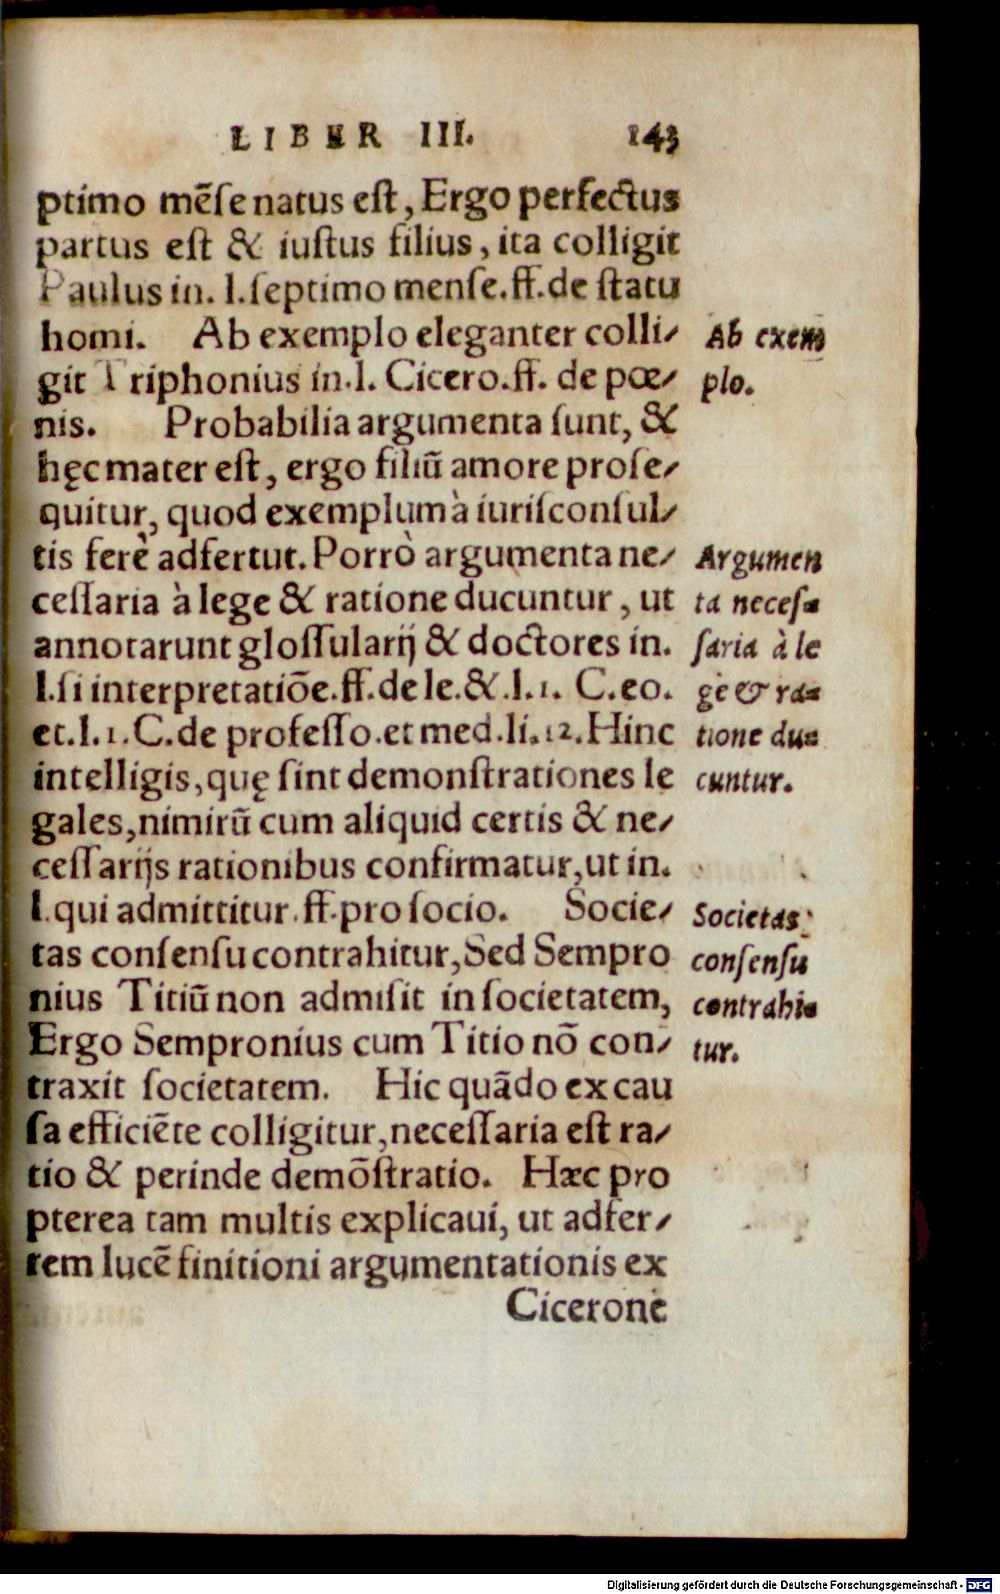 LIBER III. 143
ptimo mẽſe natus eſt, Ergo perfectus
partus eſt & iuſtus filius, ita colligit
Paulus in. l. ſeptimo menſe. ff. de ſtatu
homi. Ab exemplo eleganter colli⸗
git Triphonius in. l. Cicero. ff. de pœ⸗
nis. Probabilia argumenta ſunt, &
hęc mater eſt, ergo filiũ amore proſe⸗
quitur, quod exemplum à iuriſconſul⸗
tis ferè adfertut. Porrò argumenta ne⸗
ceſſaria à lege & ratione ducuntur, ut
annotarunt gloſſularij & doctores in.
l. ſi interpretatiõe. ff. de le. &. l. 1. C. eo.
et. l. 1. C. de profeſſo. et med. li. 12. Hinc
intelligis, quę ſint demonſtrationes le
gales, nimirũ cum aliquid certis & ne⸗
ceſſarijs rationibus confirmatur, ut in.
l. qui admittitur. ff. pro ſocio. Socie⸗
tas conſenſu contrahitur, Sed Sempro
nius Titiũ non admiſit in ſocietatem,
Ergo Sempronius cum Titio nõ con⸗
traxit ſocietatem. Hic quãdo ex cau
ſa efficiẽte colligitur, neceſſaria eſt ra⸗
tio & perinde demõſtratio. Hæc pro
pterea tam multis explicaui, ut adfer⸗
rem lucẽ finitioni argumentationis ex
Cicerone
Ab exem
plo.
Argumen
ta neceſ⸗
ſaria à le
ge & ra⸗
tione du⸗
cuntur.
Societas
conſenſu
contrahi⸗
tur.
Digitalisierung gefördert durch die Deutsche Forschungsgemeinschaft - DFG